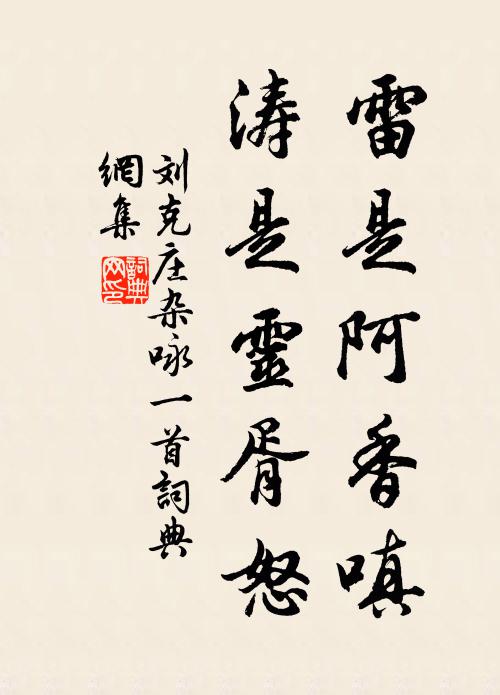 雷是阿香嗔
涛是靈胥怒
刘克庄杂咏一首詞典
網集
詞典網印